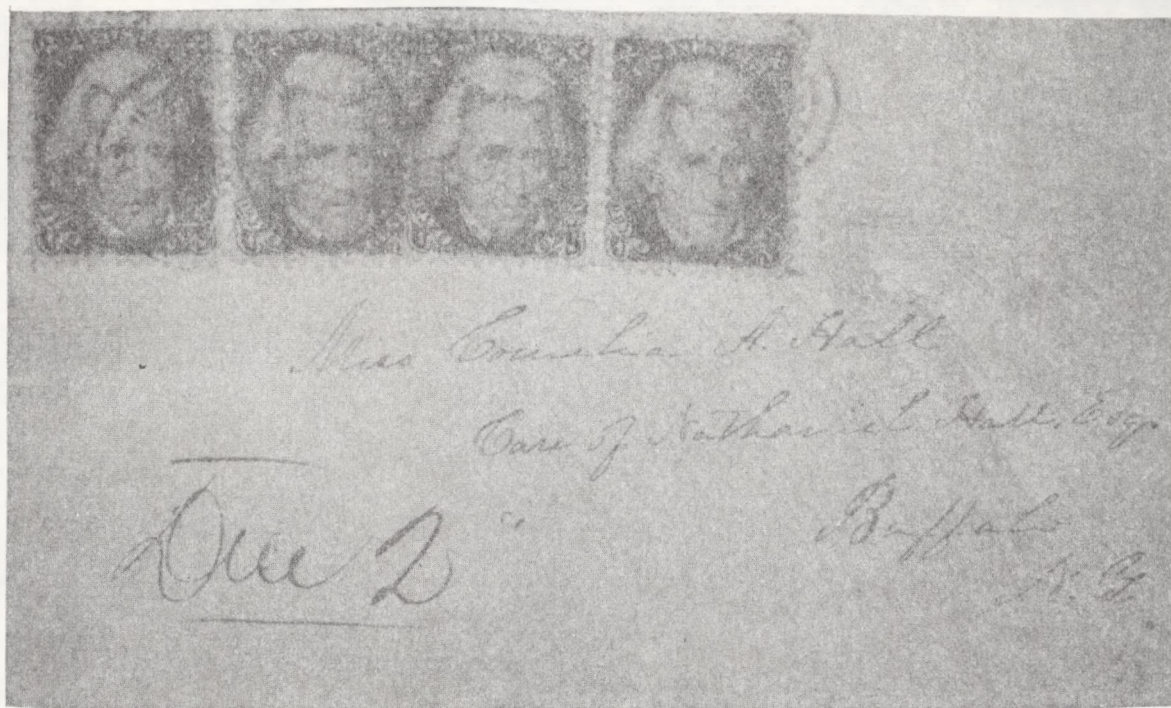 Miss Cornelia A. Hall
Care of Nathaniel Hall, Esqr
Buffalo
N. Y.
Due 2